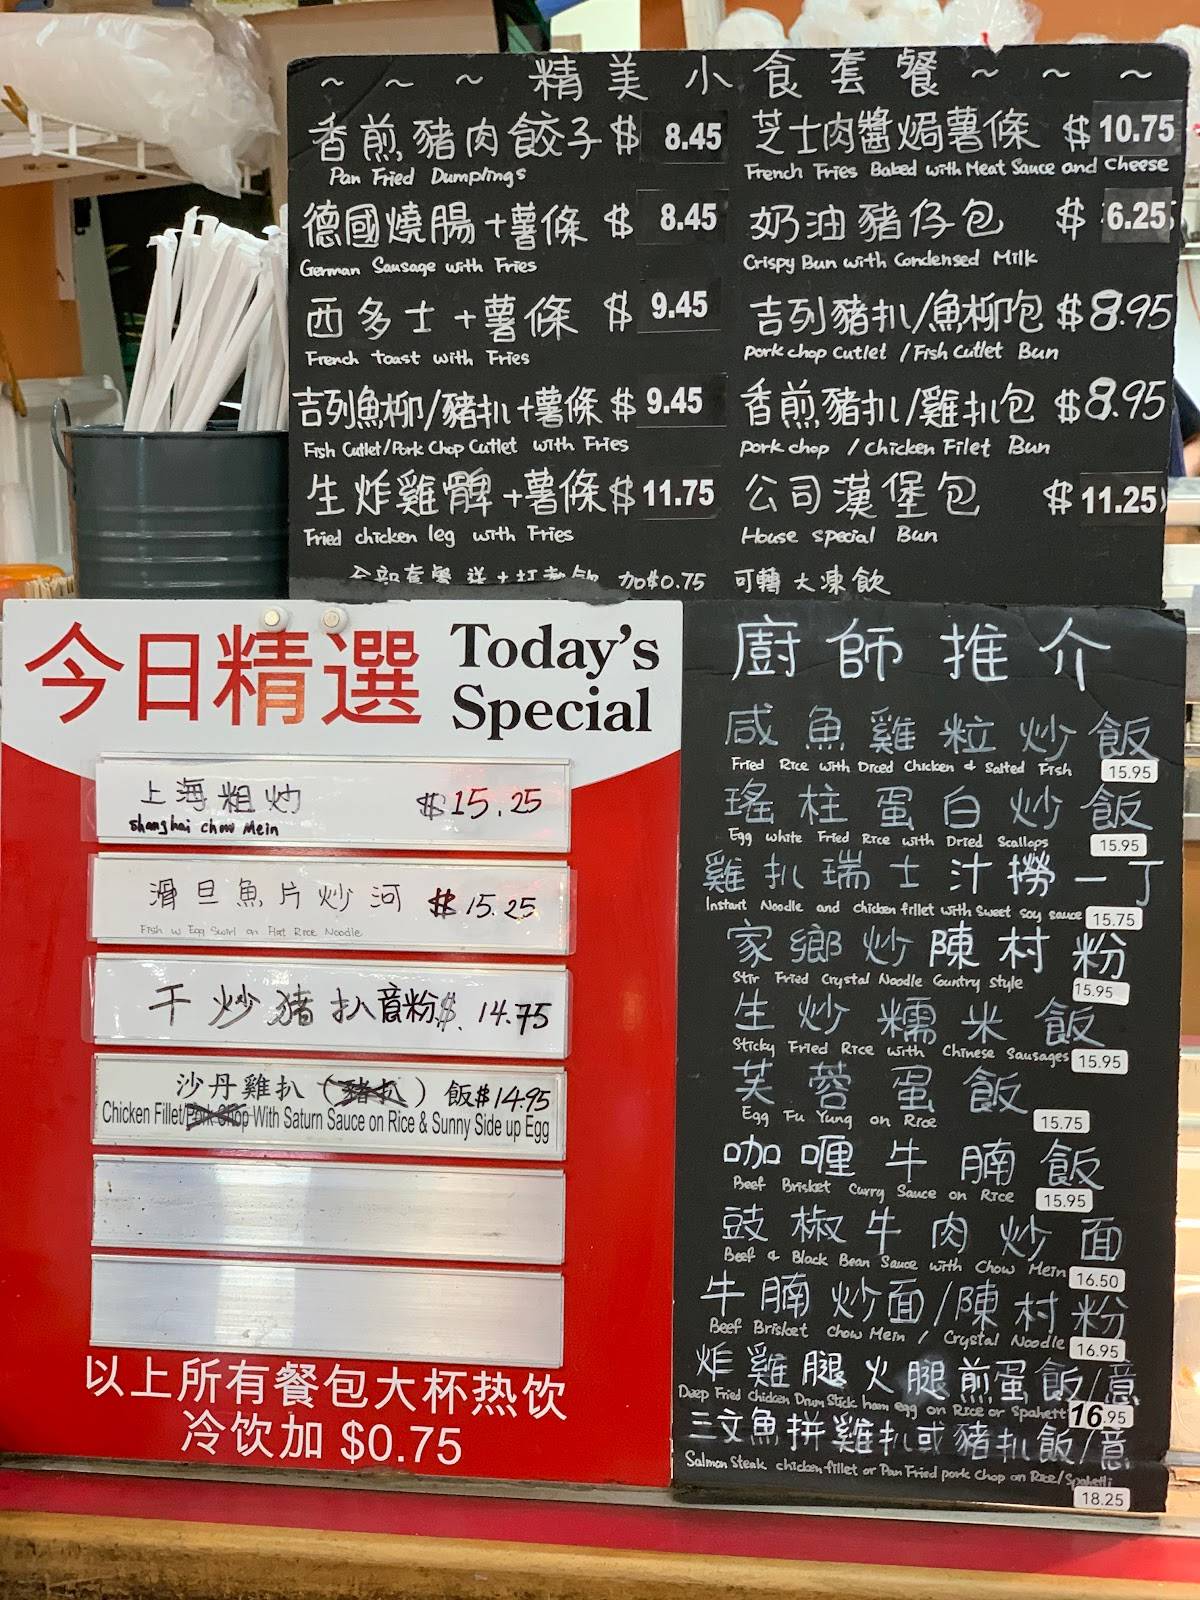 ~ ~ ~ 精美小食套餐 ~ ~ ~
香煎豬肉餃子 $ 8.45
Pan Fried Dumplings
德國燒腸+薯條 $ 8.45
German Sausage with Fries
西多士+薯條 $ 9.45
French toast with Fries
吉列魚柳/豬扒+薯條 $ 9.45
Fish Cutlet/Pork Chop Cutlet with Fries
生炸雞髀+薯條 $ 11.75
Fried chicken leg with Fries
芝士肉醬焗薯條 $ 10.75
French Fries Baked with Meat Sauce and Cheese
奶油豬仔包 $ 6.25
Crispy Bun with Condensed Milk
吉列豬扒/魚柳包 $8.95
pork chop Cutlet / Fish Cutlet Bun
香煎豬扒/雞扒包 $8.95
pork chop / Chicken Filet Bun
公司漢堡包 $ 11.25
House special Bun
全部套餐送 加$0.75 可轉大凍飲
今日精選 Today's
Special
上海粗炒 $15.25
Shanghai Chow Mein
滑旦魚片炒河 $15.25
Fish w Egg Swirl on Flat Rice Noodle
干炒豬扒意粉$ 14.75
沙丹雞扒（豬扒）飯$14.95
Chicken Fillet/Pork Chop With Saturn Sauce on Rice & Sunny Side up Egg
以上所有餐包大杯热饮
冷饮加 $0.75
廚師推介
咸魚雞粒炒飯
Fried Rice with Diced Chicken & Salted Fish 15.95
瑤柱蛋白炒飯
Egg White Fried Rice with Dried Scallops 15.95
雞扒瑞士汁撈一丁
Instant Noodle and chicken fillet with Sweet soy sauce 15.75
家鄉炒陳村粉
Stir Fried Crystal Noodle Country Style 15.95
生炒糯米飯
Sticky Fried Rice with Chinese Sausages 15.95
芙蓉蛋飯
Egg Fu Yung on Rice 15.75
咖喱牛腩飯
Beef Brisket Curry Sauce on Rice 15.95
豉椒牛肉炒面
Beef & Black Bean Sauce with Chow Mein 16.50
牛腩炒面/陳村粉
Beef Brisket Chow Mein / Crystal Noodle 16.95
炸雞腿火腿煎蛋飯/意
Deep Fried Chicken Drum Stick ham egg on Rice or Spahett 16.95
三文魚拼雞扒或豬扒飯/意
Salmon Steak chicken fillet or Pan Fried pork Chop on Rice/Spahetti
18.25